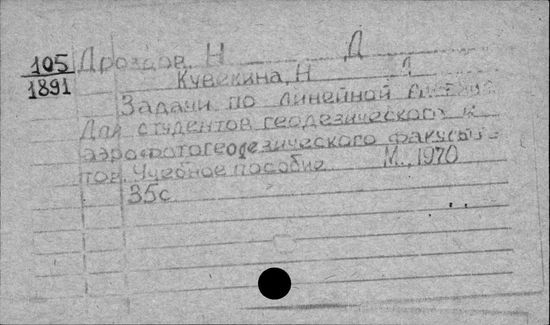 105 Дроздов, Н Д
1891 Кувекина, Н
Задачи по линейной
Для студентов геодезического и
аэрофотогеодезического факульт-
тов. Учебное пособие М., 1970
35с